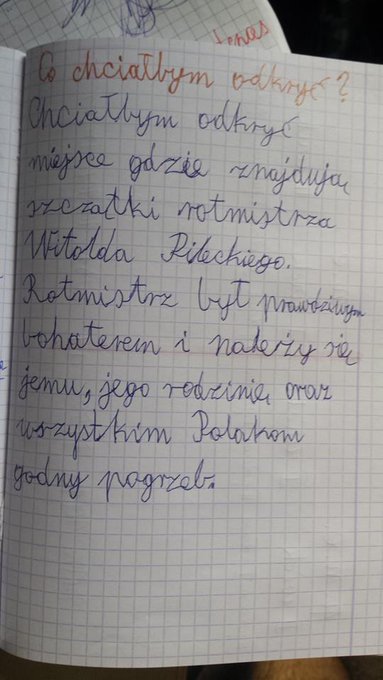 Co chciałbym odkryć?
Chciałbym odkryć
miejsce gdzie znajdują
szczątki rotmistrza
Witolda Pileckiego.
Rotmistrz był prawdziwym
bohaterem i należy się
jemu, jego rodzinie oraz
wszystkim Polakom
godny pogrzeb.